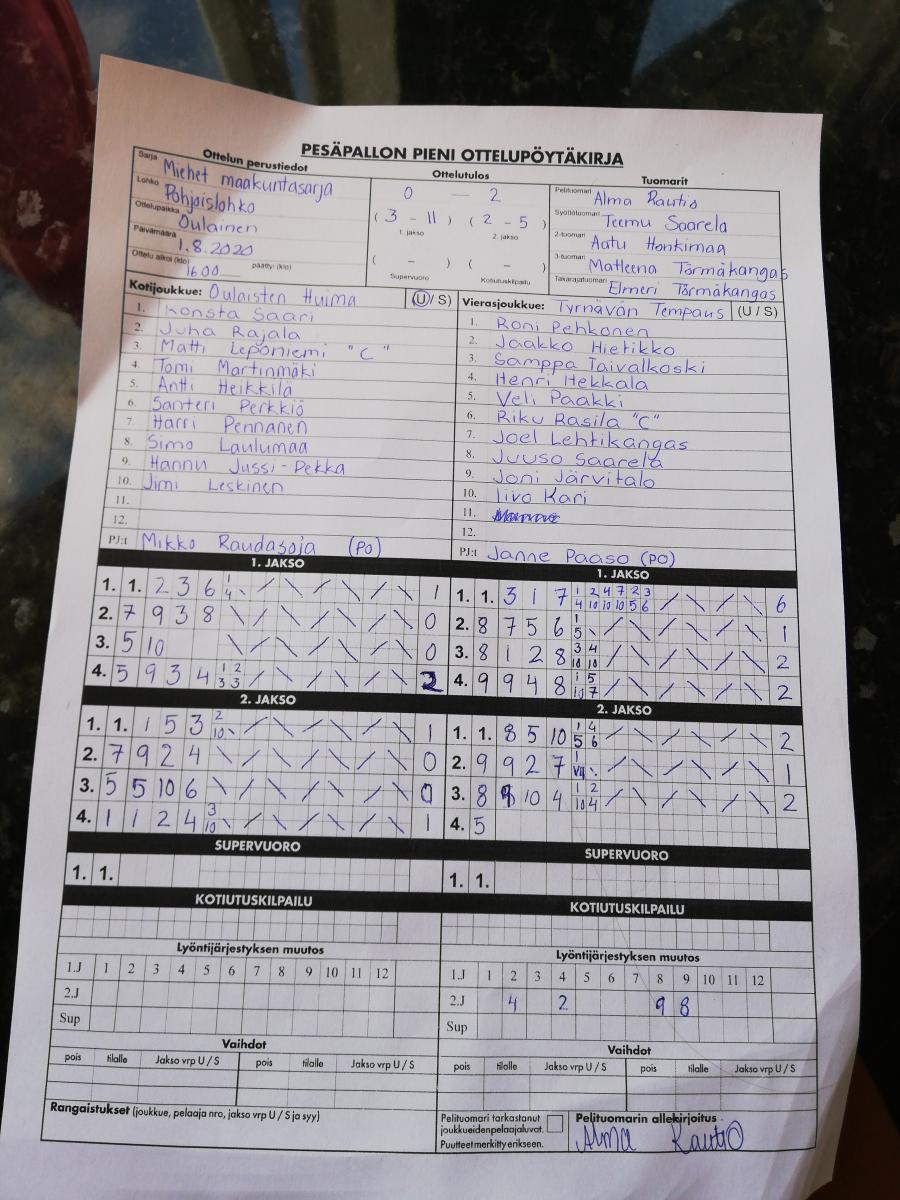 PESÄPALLON PIENI OTTELUPÖYTÄKIRJA
Ottelun perustiedot
Sarja Miehet maakuntasarja
Lohko Pohjoislohko
Ottelupaikka Oulainen
Päivämäärä 1.8.2020
Ottelu alkoi (klo) 1600 päättyi (klo)
Ottelutulos
0 — 2
( 3 - 11 ) ( 2 - 5 )
1. jakso 2. jakso
( - ) ( - )
Supervuoro Kotiutuskilpailu
Tuomarit
Pelituomari Alma Rautio
Syöttötuomari Teemu Saarela
2-tuomari Aatu Honkimaa
3-tuomari Matleena Törmäkangas
Takarajatuomari Elmeri Törmäkangas
Kotijoukkue: Oulaisten Huima (U/ S)
1. Konsta Saari
2. Juha Rajala
3. Matti Leponiemi "C"
4. Tomi Martinmäki
5. Antti Heikkilä
6. Santeri Perkkiö
7. Harri Pennanen
8. Simo Laulumaa
9. Hannu Jussi-Pekka
10. Jimi Leskinen
11.
12.
PJ:t Mikko Raudasoja (PO)
Vierasjoukkue: Tyrnävän Tempaus (U / S)
1. Roni Pehkonen
2. Jaakko Hietikko
3. Samppa Taivalkoski
4. Henri Hekkala
5. Veli Paakki
6. Riku Rasila "C"
7. Joel Lehtikangas
8. Juuso Saarela
9. Joni Järvitalo
10. Iivo Kari
11.
12.
PJ:t Janne Paaso (PO)
1. JAKSO
1. 1. 2 3 6 1 4 1
2. 7 9 3 8 0
3. 5 10 0
4. 5 9 3 4 1 2 3 3 2
2. JAKSO
1. 1. 1 5 3 2 10 1
2. 7 9 2 4 0
3. 5 5 10 6 0
4. 1 1 2 4 3 10 1
SUPERVUORO
1. 1.
KOTIUTUSKILPAILU
Lyöntijärjestyksen muutos
1.J 1 2 3 4 5 6 7 8 9 10 11 12
2.J
Sup
Vaihdot
pois tilalle Jakso vrp U / S pois tilalle Jakso vrp U / S
Rangaistukset (joukkue, pelaaja nro, jakso vrp U / S ja syy)
1. JAKSO
1. 1. 3 1 7 1 2 4 7 2 3 6
4 10 10 10 5 6
2. 8 7 5 6 1 5 1
3. 8 1 2 8 3 4 10 10 2
4. 9 9 4 8 1 5 10 7 2
2. JAKSO
1. 1. 8 5 10 1 4 5 6 2
2. 9 9 2 7 1 1
3. 8 10 4 1 2 10 4 2
4. 5
SUPERVUORO
1. 1.
KOTIUTUSKILPAILU
Lyöntijärjestyksen muutos
1.J 1 2 3 4 5 6 7 8 9 10 11 12
2.J 4 2 9 8
Sup
Vaihdot
pois tilalle Jakso vrp U / S pois tilalle Jakso vrp U / S
Pelituomari tarkastanut
joukkueidenpelaajaluvat.
Puutteet merkitty erikseen.
Pelituomarin allekirjoitus
Alma Rautio